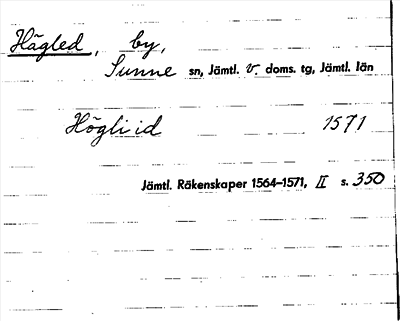 Hägled, by,
Sunne sn, Jämtl. V. doms. tg, Jämtl. län
Högliid 1571
Jämtl. Räkenskaper 1564–1571, II s. 350